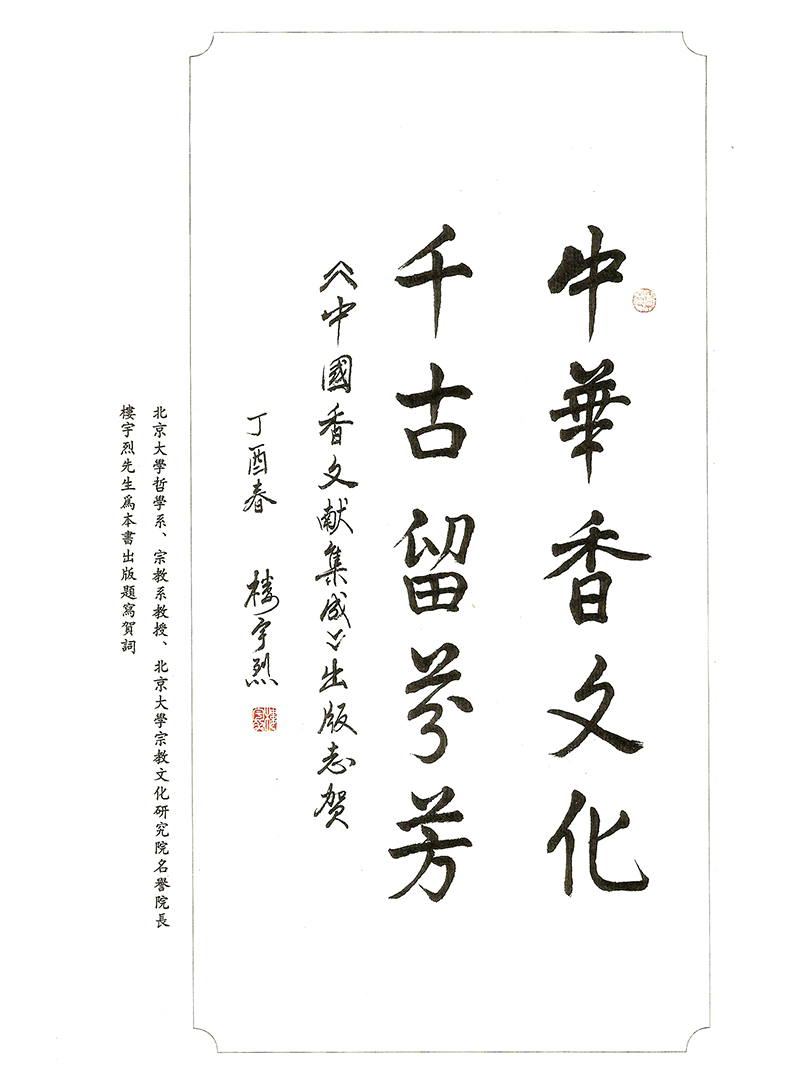 中華香文化
千古留芬芳
《中國香文献集成》出版志贺
丁酉春 楼宇烈
北京大學哲學系、宗教系教授、北京大學宗教文化研究院名譽院長
樓宇烈先生爲本書出版題寫賀詞